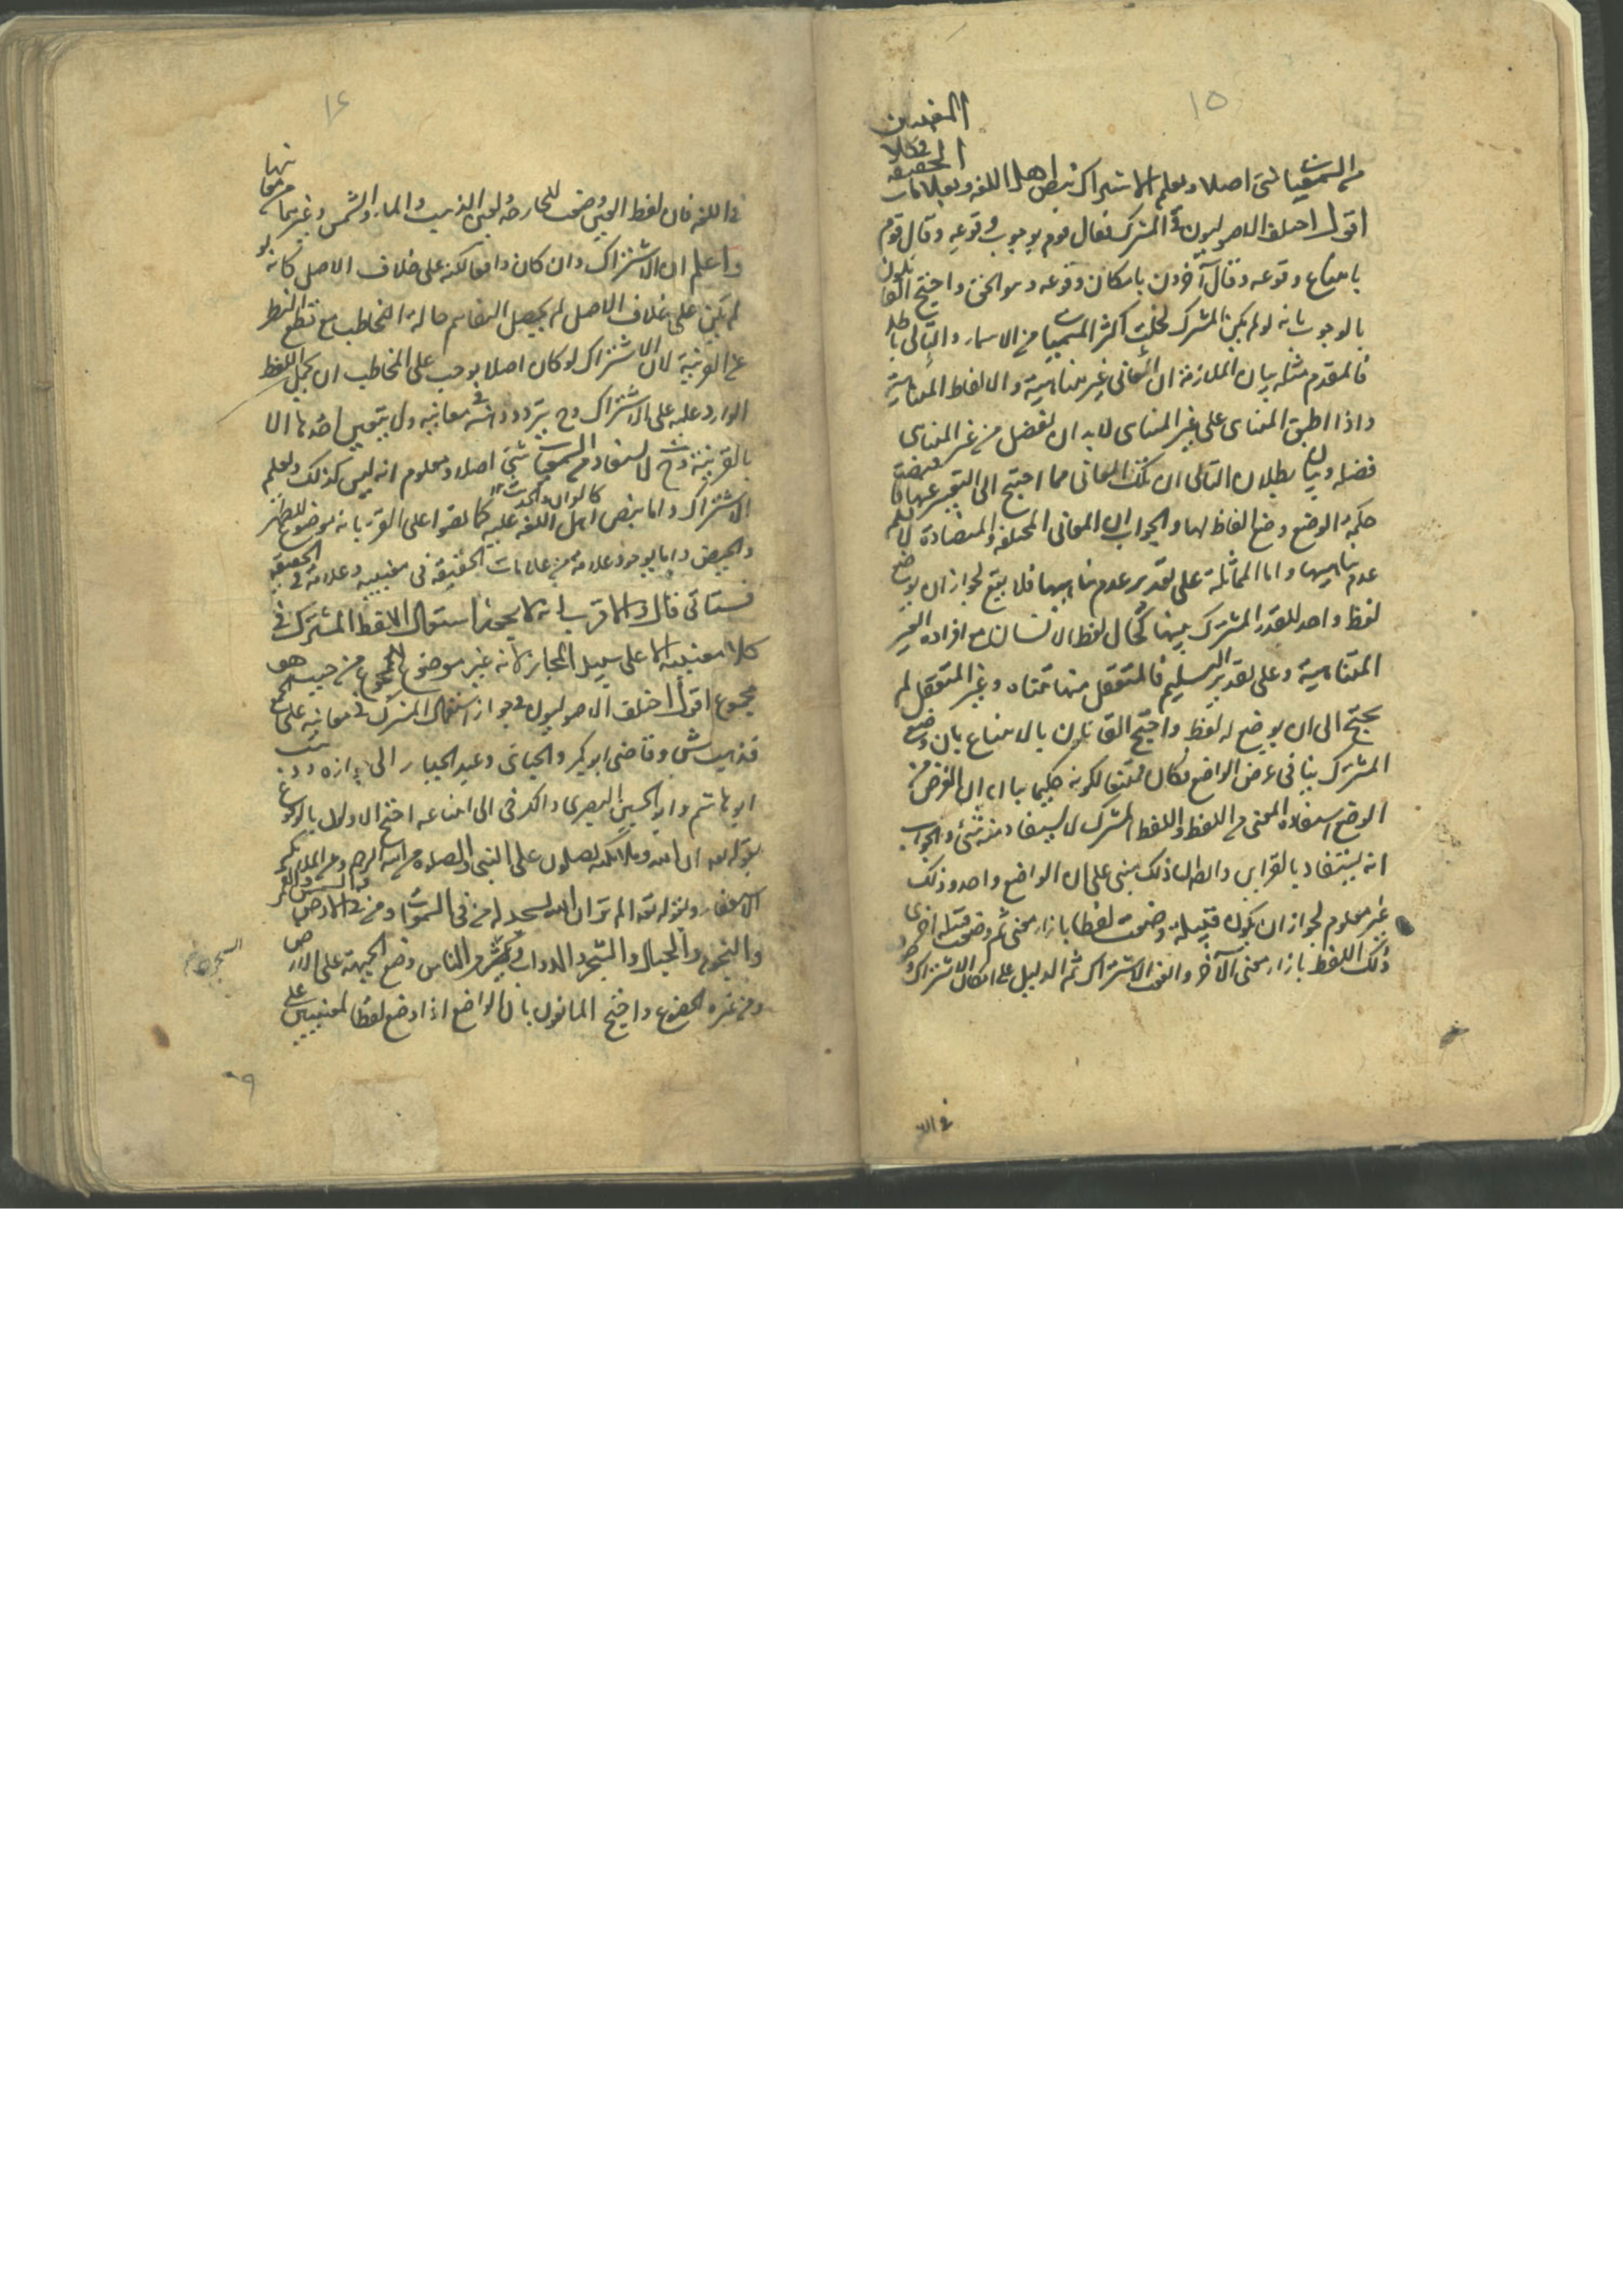 ١٥
من السمعيات شئ اصلا ويعلم الاشتراك بنص اهل اللغة وبعلامات
الحقيقة
في كلا
المعنيين
اقول اختلف الاصوليون في المشترك فقال قوم بوجوب وقوعه وقال قوم
بامتناع وقوعه وقال آخرون بامكان وقوعه وهو الحق واحتج القائلون
بالوجوب بانه لو لم يكن المشترك لخلت اكثر المسميات من الاسماء والتالي باطل
فالمقدم مثله بيان الملازمة ان المعاني غير متناهية والالفاظ المتناهية
واذا اطبق المتناهي على غير المتناهي لابد ان يفضل من غير المتناهي
فضله وبيان بطلان التالي ان تلك المعاني مما احتيج الى التعبير عنها فاقتضت
حكمة الوضع وضع الفاظ لها والجواب ان المعاني المختلفة والمتضادة لا نعلم
عدم تناهيها واما المماثلة على تقدير عدم تناهيها فلا يقع لجواز ان يوضع
لفظ واحد للقدر المشترك بينها كحال لفظ الانسان مع افراده الغير
المتناهية وعلى تقدير التسليم فالمتعقل منها متناه وغير المتعقل لم
يحتج الى ان يوضع له لفظ واحتج القائلون بالامتناع بان وضع
المشترك ينافي غرض الواضع فكان ممتنعا لكونه حكيما بيانه ان الغرض من
الوضع استفادة المعنى من اللفظ واللفظ المشترك لا يستفاد منه شئ والجواب
انه يستفاد بالقراين وايضا ان ذلك مبني على ان الواضع واحد وذلك
غير معلوم لجواز ان يكون قبيلة وضعت لفظا بازاء معنى ثم وضعت قبيلة اخرى
ذلك اللفظ بازاء معنى الآخر واتفق الاشتراك ثم الدليل على امكان الاشتراك
في اللـ
١٦
في اللغة فان لفظ العين وضعت للجارحة ولعين الذهب والماء والشمس وغيرها من معانيها
واعلم ان الاشتراك وان كان واقعا لكنه على خلاف الاصل لانه لو
لم يكن على خلاف الاصل لم يحصل التفاهم حالة التخاطب مع قطع النظر
عن القرينة لان الاشتراك لو كان اصلا يوجب على المخاطب ان يحمل اللفظ
الوارد عليه على الاشتراك وح يتردد ذهنه في معانيه ولا يتعين احدها الا
بالقرينة وح لا يستفاد من السمعيات شئ اصلا ومعلوم انه ليس كذلك ويعلم
الاشتراك اما بنص اهل اللغة عليه كما نصوا على القرء بانه موضوع للطهر
والحيض واما بوجود علامة من علامات الحقيقة في معنييه وعلامة الحقيقة
فستاتي قال والاقرب انه لا يجوز استعمال اللفظ المشترك في
كلا معنييه الا على سبيل المجاز لانه غير موضوع للمجموع من حيث هو
مجموع اقول اختلف الاصوليون في جواز استعمال المشترك في معانيه على الجمع
فذهب ش وقاضى ابوبكر والجبائي وعبد الجبار الى جوازه وذهب
ابو هاشم وابو الحسين البصري والكرخي الى امتناعه احتج الاولون بالوقوع
بقوله تعالى ان الله وملائكته يصلون على النبي والصلوة من الله الرحمة ومن الملائكة
الاستغفار وبقوله تعه الم تر ان الله يسجد له من في السموات ومن في الارض والشمس والقمر
والنجوم والجبال والشجر والدواب وكثير من الناس وضع الجبهة على الارض
ومن غيره الخضوع واحتج المانعون بان الواضع اذا وضع لفظا لمعنيين على
٩